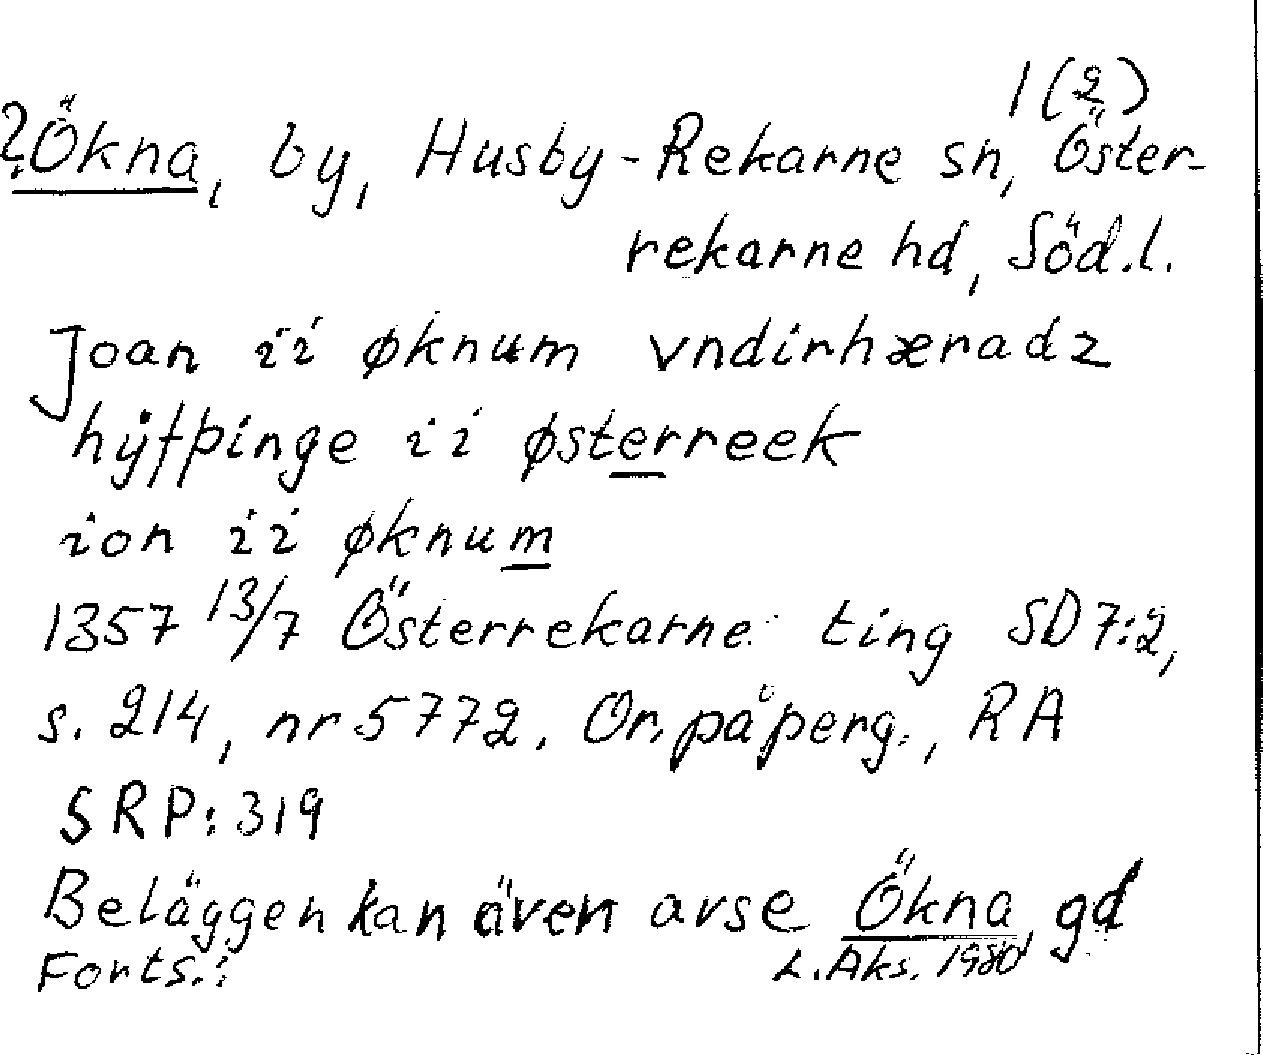 1(2)
?Ökna, by, Husby-Rekarne sn, Öster-
rekarne hd, Söd.l.
Joan ii øknum vndirhæradz
hyfþinge ii østerreek
ion ii øknum
1357 13/7 Österrekarne ting SD 7:2,
s. 214, nr 5772. Or. på perg., RA
SRP: 319
Beläggen kan även avse Ökna, gd
Forts.: L. Aks. 1980